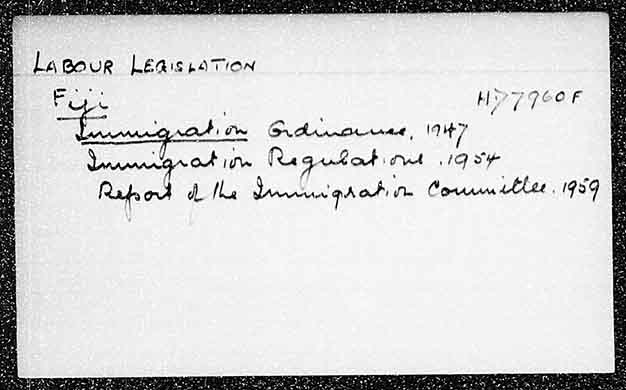 LABOUR LEGISLATION
Fiji H77960F
Immigration Ordinance, 1947
Immigration Regulations .1954
Report of the Immigration Committee. 1959